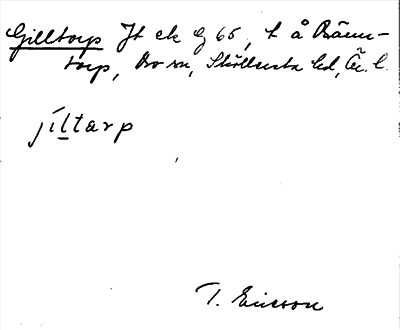 Gilltorp Jt ek G 65, t å Rämn-
torp, Bo sn, Sköllersta hd, Ör. l.
jíltarp
T. Ericson